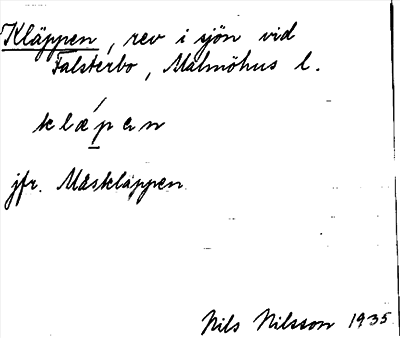 Kläppen, rev i sjön vid
Falsterbo, Malmöhus l.
klæ´pen
jfr. Måskläppen
Nils Nilsson 1935